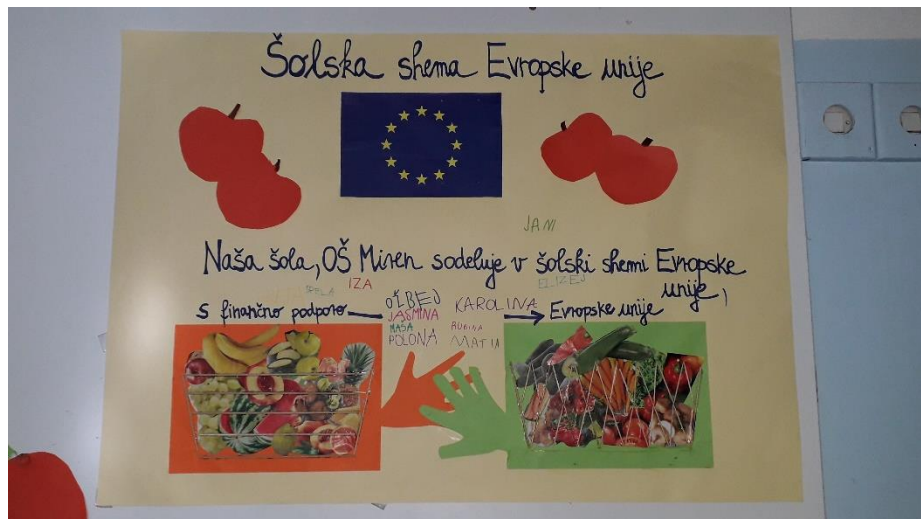 Šolska shema Evropske unije
JANI
Naša šola, OŠ Miren sodeluje v šolski shemi Evropske unije,
IZA
ELIZEJ
s finančno podporo → Evropske unije
OŽBEJ
KAROLINA
JASMINA
MAŠA
RUBINA
POLONA
MATIA